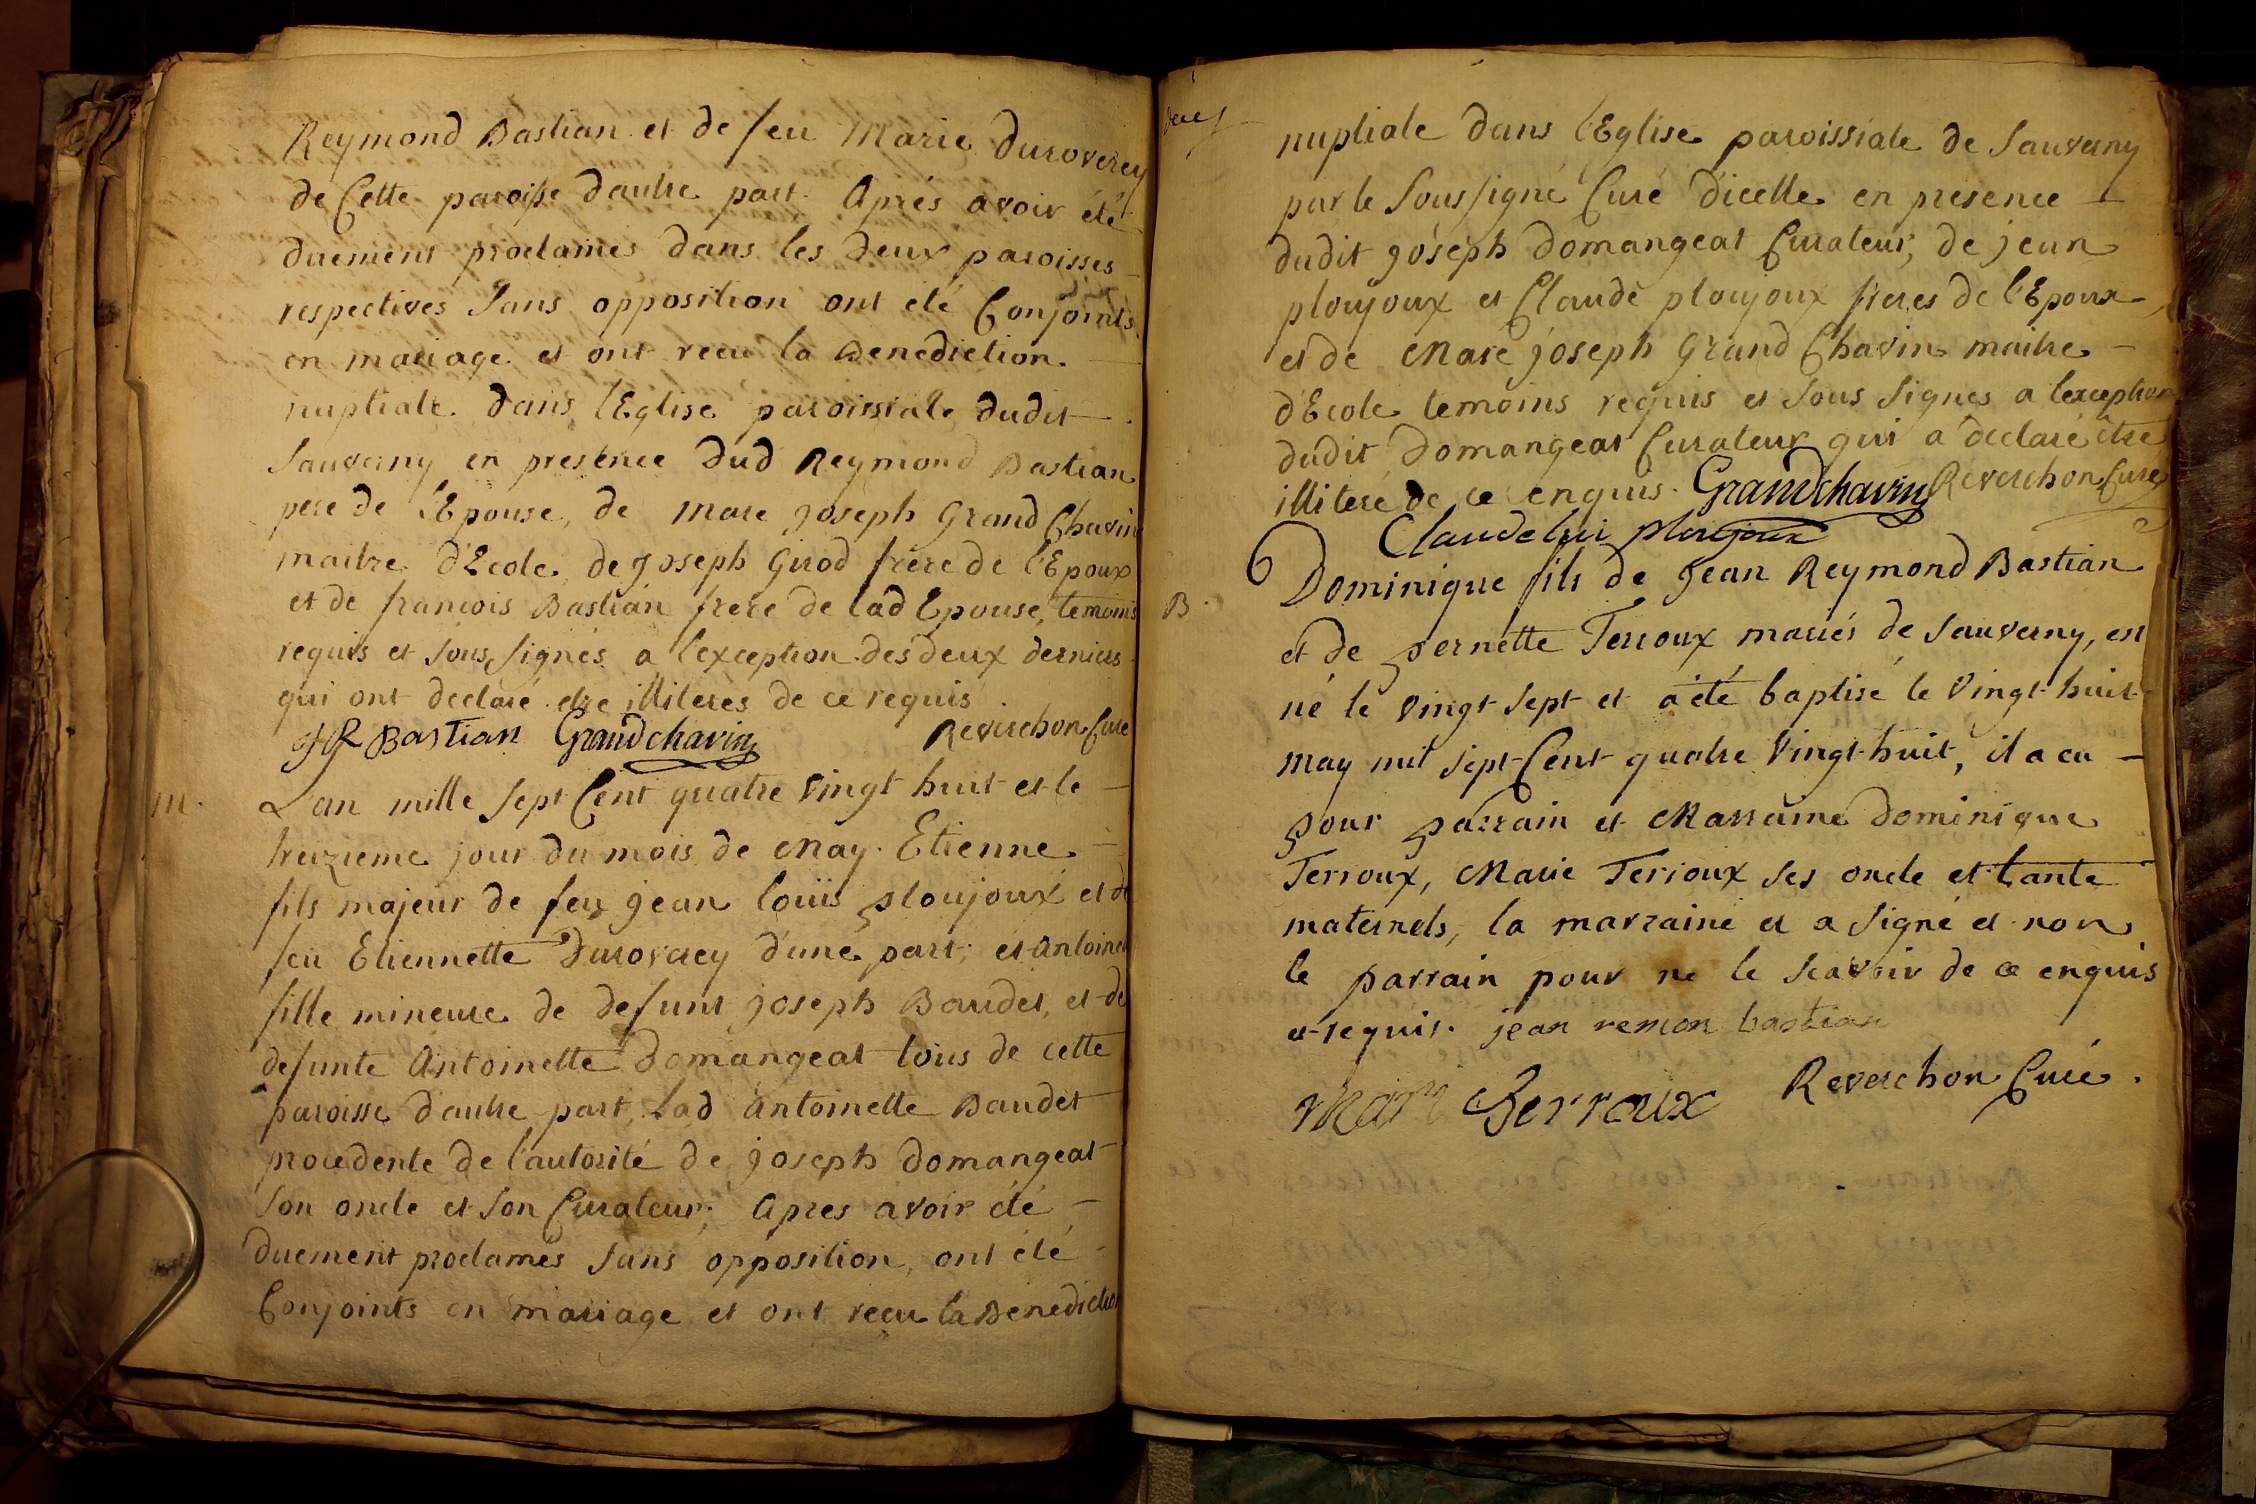 Reymond Bastian et de feu Marie Duroverey
de Cette paroisse d'autre part. Aprés avoir été
duement proclamés dans les deux paroisses
respectives Sans opposition ont été Conjoints
en mariage et ont recu la Benediction
nuptiale dans l'Eglise paroissiale dudit
Sauverny en presence dud Reymond Bastian
pere de l'Epouse, de Marc joseph Grand Chavin
maitre d'Ecole, de joseph Girod frere de l'Epoux
et de francois Bastian frere de lad Epouse, temoins
requis et sous signés a l'exception des deux derniers
qui ont declaré etre illiterés de ce requis
JR Bastian Grandchavin Reverchon Curé
m. Lan mille sept Cent quatre vingt huit et le
treizieme jour du mois de May. Etienne
fils majeur de feu jean louïs ploujoux et de
feu Etiennette Duroverey d'une part; et Antoinette
fille mineure de defunt joseph Baudet, et de
defunte Antoinette Domangeat tous de cette
paroisse d'autre part, Lad Antoinette Baudet
procedente de l'autorité de joseph Domangeat
son oncle et son Curateur; Apres avoir été
duement proclamés sans opposition, ont été
Conjoints en mariage et ont recu la Benediction
nuptiale dans l'Eglise paroissiale de Sauverny
par le Soussigné Curé d'icelle en presence
dudit joseph Domangeat Curateur, de jean
ploujoux et Claude ploujoux freres de l'Epoux,
et de Marc joseph Grand Chavin maitre
d'Ecole temoins requis et sous signés a l'exception
dudit Domangeat Curateur qui a declaré être
illiteré de ce enquis. Grandchavin Reverchon Curé
Claude lui ploujoux
B. Dominique fils de Jean Reymond Bastian
et de pernette Terroux mariés de Sauverny, est
né le vingt sept et a été baptisé le Vingt huit
may mil sept Cent quatre Vingt huit, il a eu
pour parrain et Marraine Dominique
Terroux, Marie Terroux ses oncle et tante
maternels, la marraine et a signé et non
le parrain pour ne le scavoir de ce enquis
et requis. jean remon bastian
Mari Terroux Reverchon Curé.